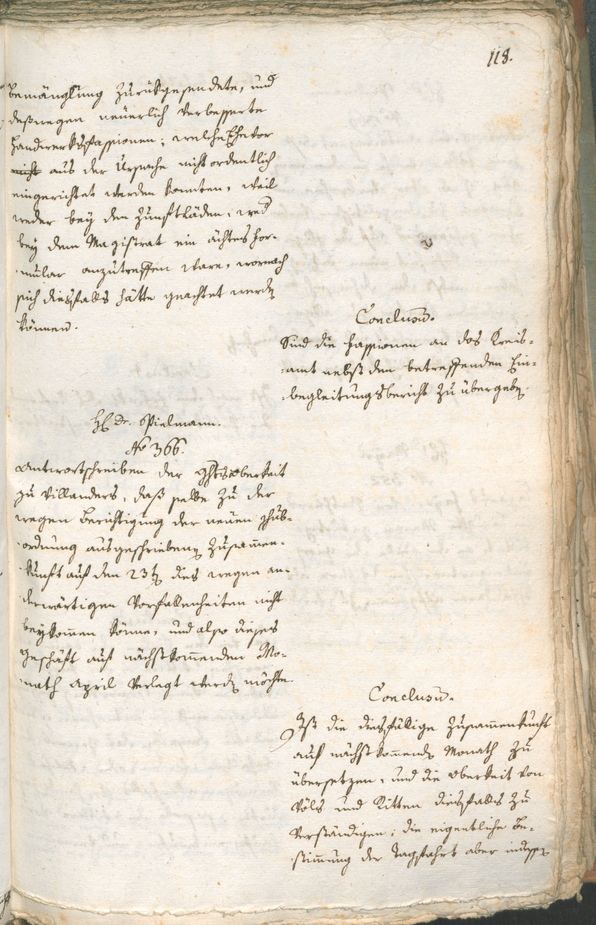 118.
bemänglung zurükgesendete, und
deßwegen neuerlich verbesserte
Handwerksfassionen; welche Ehevor
nicht aus der Ursache nicht ordentlich
eingerichtet werden konnten, weil
weder bey den Zunftläden, und
bey dem Magistrat ein ächtes For-
mular anzutreffen ware, wornach
sich diesfalls hätte geachtet werden
können.
Conclusum.
Sind die Fassionen an das Kreis-
amt nebst den betreffenden Ein-
begleitungsbericht zu übergeben.
H: Dr. Spielmann.
No 366.
Antwortschreiben der Obrikeit
zu Villanders, daß selbe zu der
wegen Berichtigung der neuen
ordnung ausgeschriebenen Zusammen-
kunft auf den 23ten dies wegen an-
derwärtigen Vorfallenheiten nicht
beykommen könne, und also dieses
Geschäft auf nächstkommenden Mo-
nath April verlegt werden möchte
Conclusum.
Ist die diesfällige Zusammenkunft
auf nächstkommenden Monath zu
übersetzen, und die Oberkeit von
Völs und Ritten diesfalls zu
verständigen; die eigentliche Be-
stimmung der Tagsfahrt aber